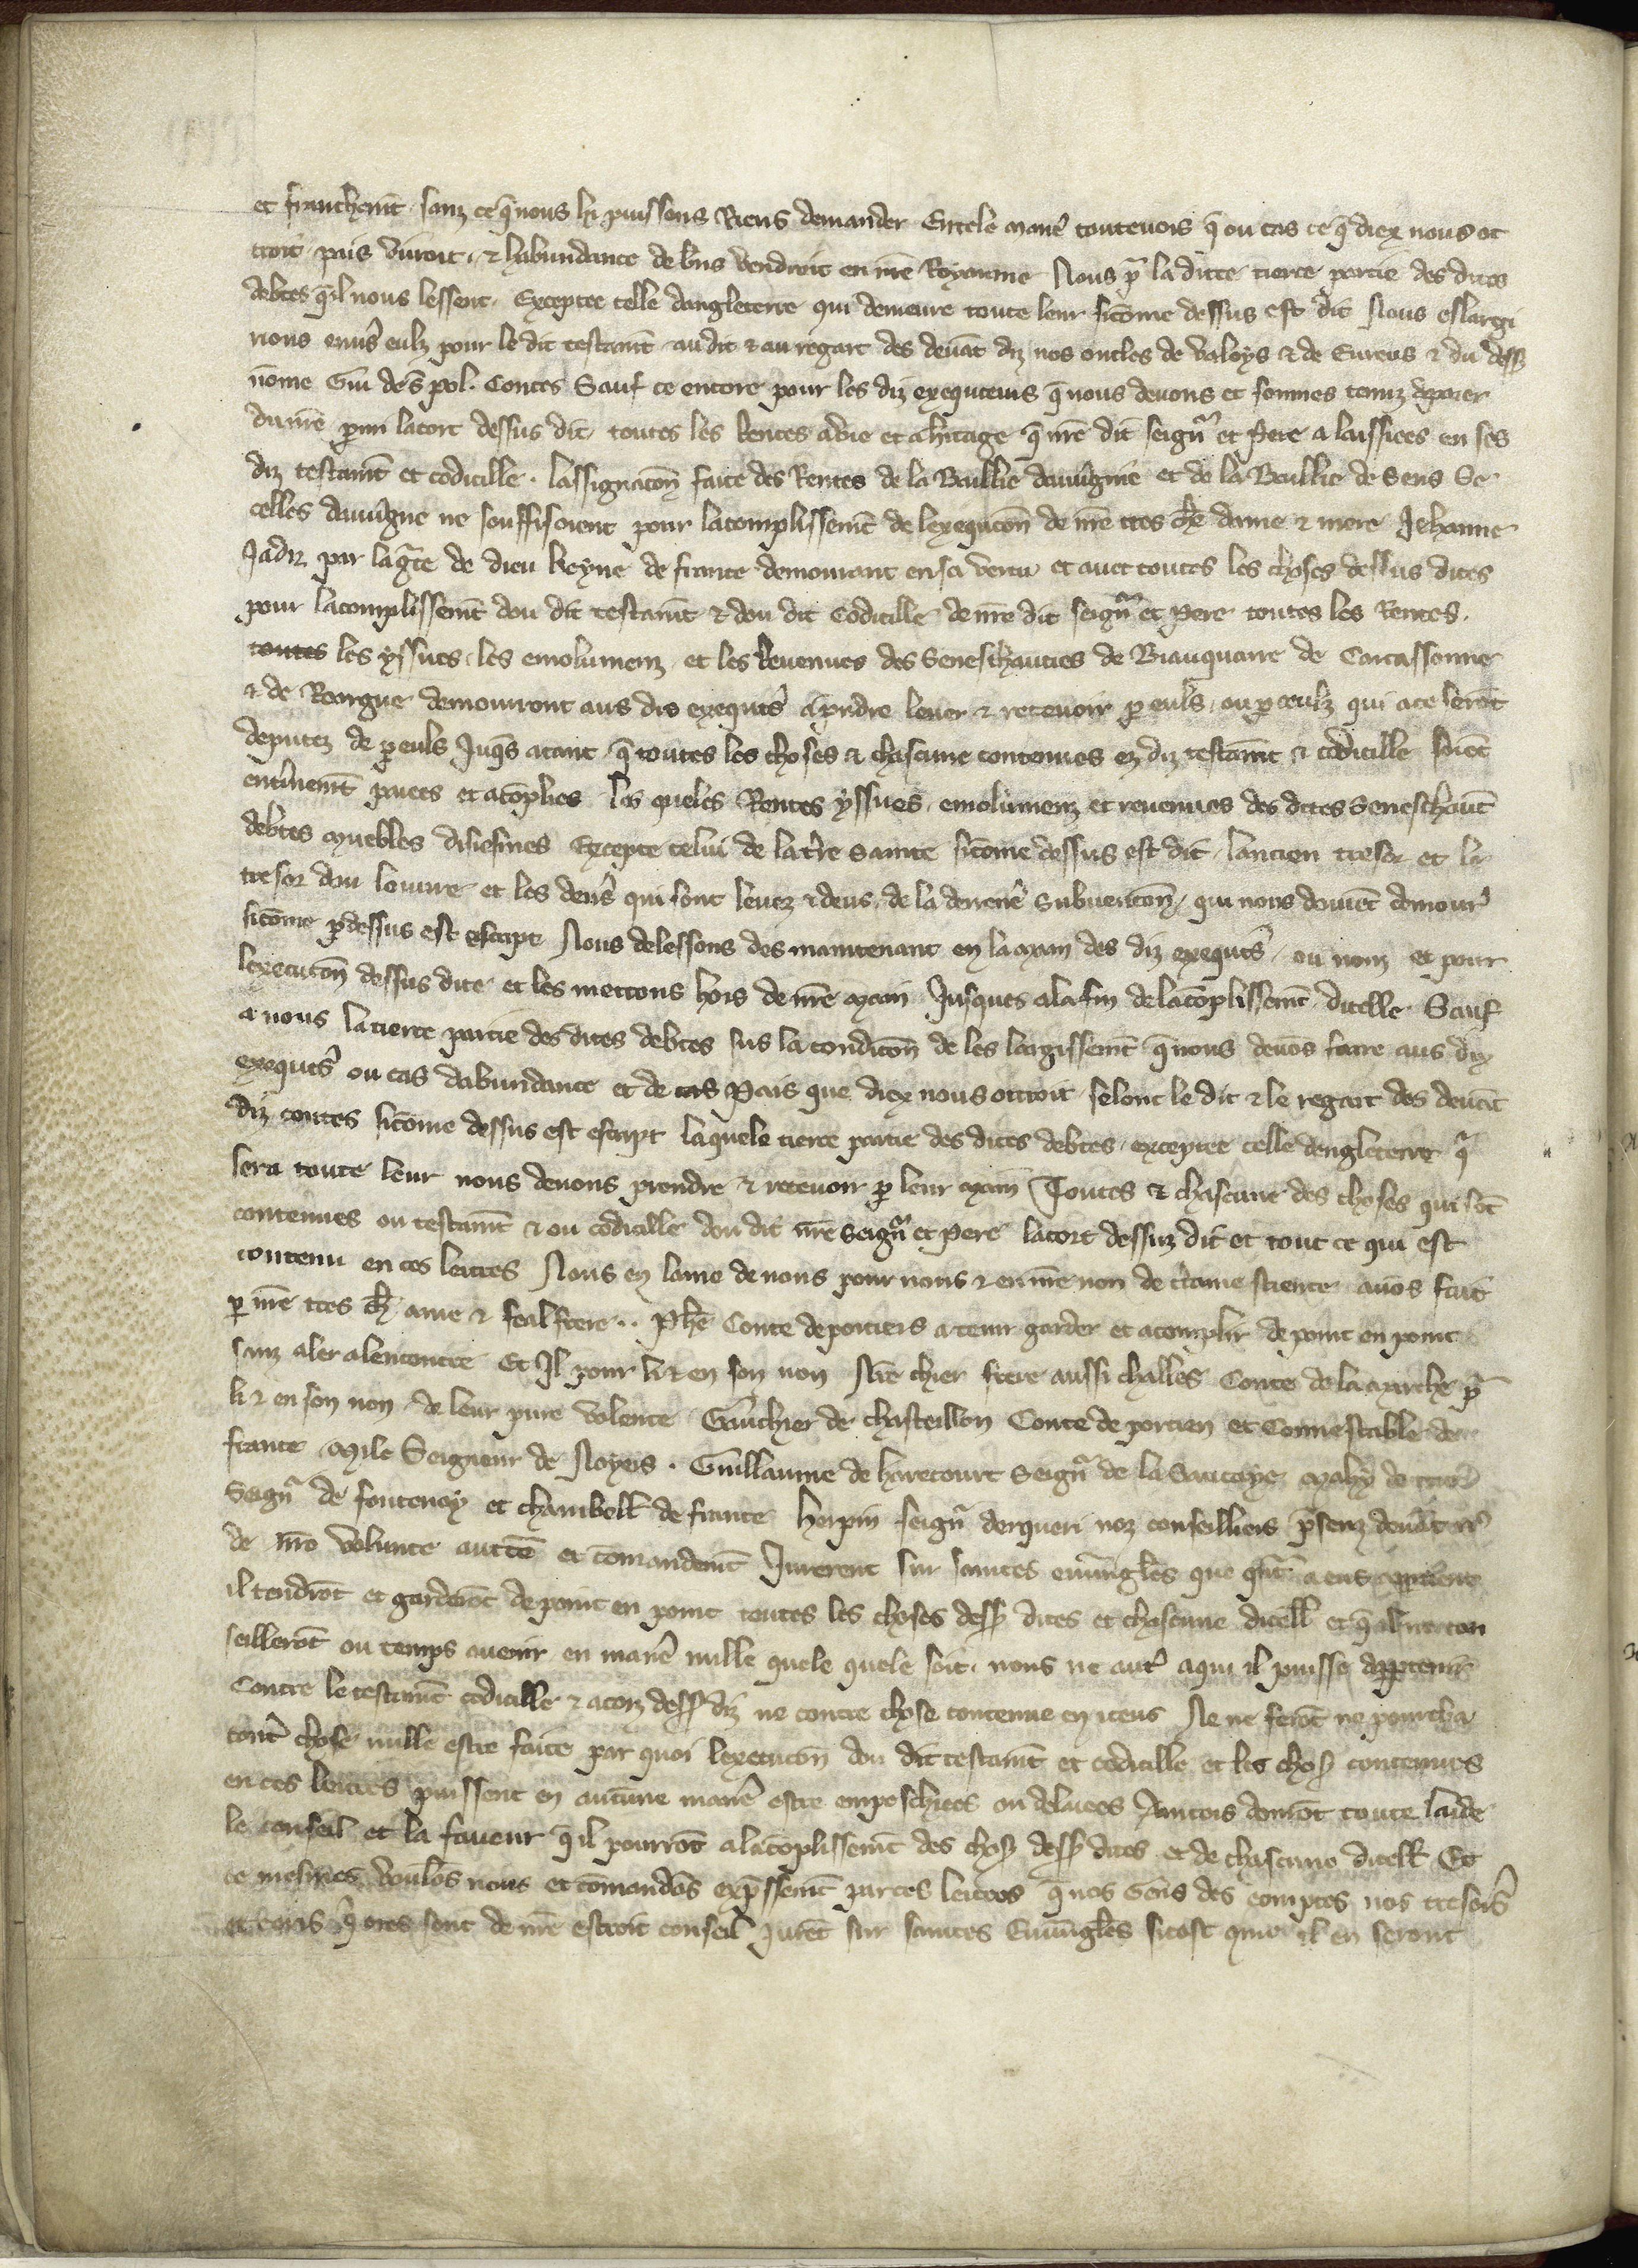 et franchemt sanz ce q̄ nous li puissons Riens demander En tele manie᷑ toutevois q̄ ou cas ce q̄ diex nous ot
troit pais vivroit & habundance de bns vendroit en nr̄e Royaume Nous pr̄ la dicte tierce partie des dites
debtes q̄ il nous lessent Exceptee celle dangleterre qui demeure toute leur sicōme dessus est dit Nous eslargi
rions envs̄ eulz pour le dit testamt au dit & au regart des devāt diz nos oncles de Valoys & de Evreus & du dess9
nōme Gui de S pol Contes Sauf ce encore pour les diz exequteurs q̄ nous devons et sommes tenuz
du nr̄e parmi lacort dessus dit toutes les Rentes a vie et a hitage q̄ nr̄e dit seignr̄ et Pere a laissiees en ses
diz testamt et codicille lassignacōn faite des Rentes de la Baillie dauvigne et de la Baillie de Sens Se
celles dauvigne ne souffisoient pour lacomplissemt de lexequcōn de nr̄e tres ch̄e dame & mere Jehanne
Jadiz par la gr̄ce de dieu Reyne de france demourant en sa vertu et avec toutes les choses dessus dites
pour lacomplissemt dou dit testamt & dou dit Codicille de nr̄e dit seignr̄ et Pere toutes les Rentes
toutes les yssues les emolumenz et les Revenues des Seneschaucies de Biauquaire de Carcassonne
& de Roargue demourront aus dis exequts̄ a prndre lever & recevoir p̱ euls ou p̱ ceulz qui a ce serōt
deputez de p̱ euls Juqs̄ a tant q̄ toutes les choses & chascune contenues ez diz testamt & codicille soiēt
entīnemt paiees et acōplies les queles Rentes yssues emolumenz et revenues des dites Seneschauc̄
debtes muebles disiesmes Excepte celui de la tr̄e Sainte sicōme dessus est dit lancien tresor et le
tresor dou louvre et les denis̄ qui sont levez & deus de la derrene᷑ Subvencōn qui nous doivēt demour᷑
sicōme p̱dessus est escript Nous delessons des maintenant en la main des diz exequts̄ ou nom et pour
lexecucōn dessus dite et les mettons hors de nr̄e main Jusques a la fin de lacōplissemt dicelle Sauf
a nous la tierce partie des dites debtes sus la condicōn de les largissemt q̄ nous devōs faire aus diz
exequts̄ ou cas dabundance et de cas Pais que diex nous ottroit selont le dit & le regart des devāt
diz contes sicōme dessus est escript laquele tierce partie des dites debtes exceptee celle dengleterre q᷑
sera toute leur nous devons prendre & recevoir p̱ leur main Toutes & chascune des choses qui sōt
contenues ou testamt & ou codicille dou dit nr̄e Seignr̄ et Pere lacort dessuz dit et tout ce qui est
contenu en ces lettres Nous en lame de nous pour nous & en nr̄e non de c̄taine science avōs fait
p̱ nr̄e tres ch̄ ame & feal frere Phe Conte de poitiers a tenir garder et acomplir de point en point
sanz aler alencontre Et Il pour li & en son non Nr̄e chier frere aussi challes Conte de la marche pr̄
li & en son non de leur pure volente Gauchier de chasteillon Conte de porcien et Connestable de
france Mile Seigneur de Noyers Guillaume de harecourt Seignr̄ de la Saucoye Mahy de
Seignr̄ de fontenay et chambell de france herpin seignr̄ derqueri noz conseilliers p̄senz devāt
de nr̄e volunte auctē et cōmandemt Jurerent sur saintes evvāgiles que q̄nt a eus
il tendrōt et garderōt de point en point toutes les choses dess9 dites et chascune dicell et q̄
seillerōt ou temps avenir en manie᷑ nulle quele quele soit nous ne aut᷑ a qui il puisse
Contre le testamt codicille & acorz dess9 diz ne contre chose contenue en iceus Ne ne ferōt ne pourcha
cerōt chose nulle estre faite par quoi lexecucōn dou dit testamt et codicille et les chos9 contenues
en ces lettres puissent en aucune manie᷑ estre empeschiees ou delaiees Aincois donrōt toute laide
le conseil et la faveur q̄ il pourrōt a lacōplissemt des chos9 dess9 dites et de chascune dicell Et
ce mesmes voulōs nous et cōmandōs exp̄ssemt par ces lettres q̄ nos Gens des comptes nos tresorīs
et touis q̄ ores sont de nr̄e estroit conseil jurēt sur saintes Evvāgiles sitost que il en seront